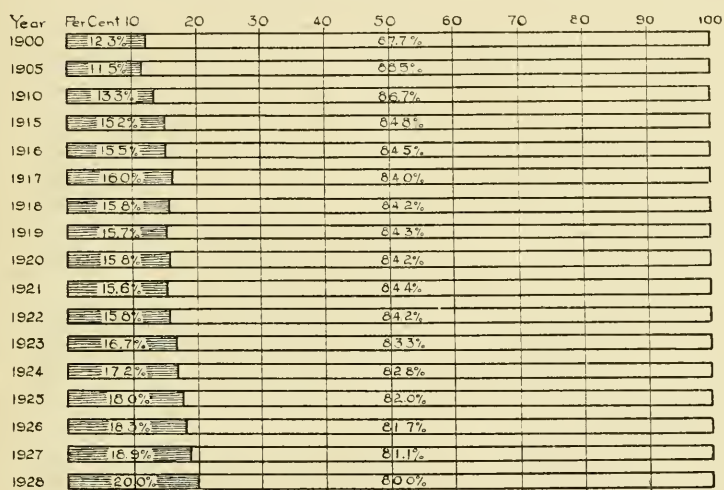 Year Per Cent 10 20 30 40 50 60 70 80 90 100
1900 12.3% 87.7%
1905 11.5% 88.5%
1910 13.3% 86.7%
1915 15.2% 84.8%
1916 15.5% 84.5%
1917 16.0% 84.0%
1918 15.8% 84.2%
1919 15.7% 84.3%
1920 15.8% 84.2%
1921 15.6% 84.4%
1922 15.8% 84.2%
1923 16.7% 83.3%
1924 17.2% 82.8%
1925 18.0% 82.0%
1926 18.3% 81.7%
1927 18.9% 81.1%
1928 20.0% 80.0%